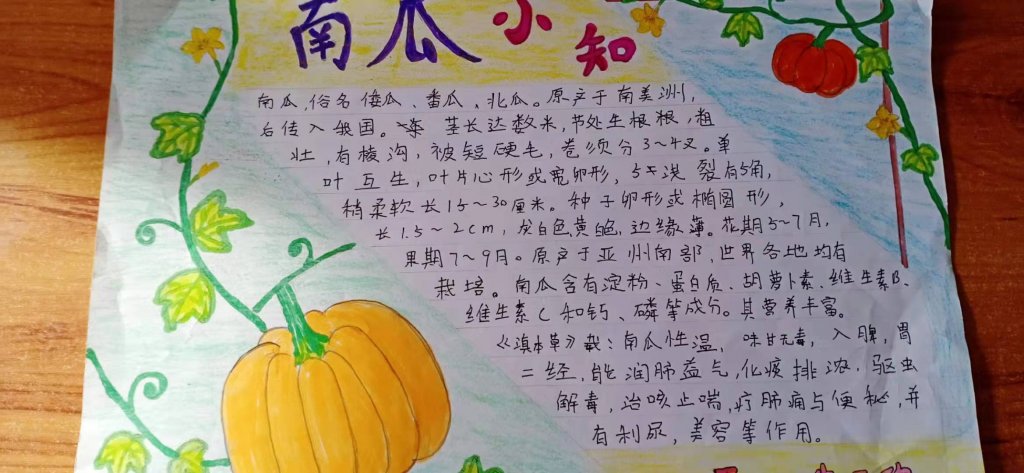 南瓜小知
南瓜,俗名倭瓜、番瓜、北瓜。原产于南美洲,
后传入我国。茎长达数米,节处生根粮,粗
壮,有棱沟,被短硬毛,卷须分3~4叉。单
叶互生,叶片心形或宽卵形,5不浅裂有5角,
稍柔软长15~30厘米。种子卵形或椭圆形,
长1.5~2cm,灰白色黄色,边缘薄。花期5~7月,
果期7~9月。原产于亚州南部,世界各地均有
栽培。南瓜含有淀粉、蛋白质、胡萝卜素、维生素B、
维生素C和钙、磷等成分。其营养丰富。
《滇本草》:南瓜性温,味甘无毒,入脾,胃
二经,能润肺益气,化痰排浓,驱虫
解毒,治咳止喘,疗肺痈与便秘,并
有利尿,美容等作用。